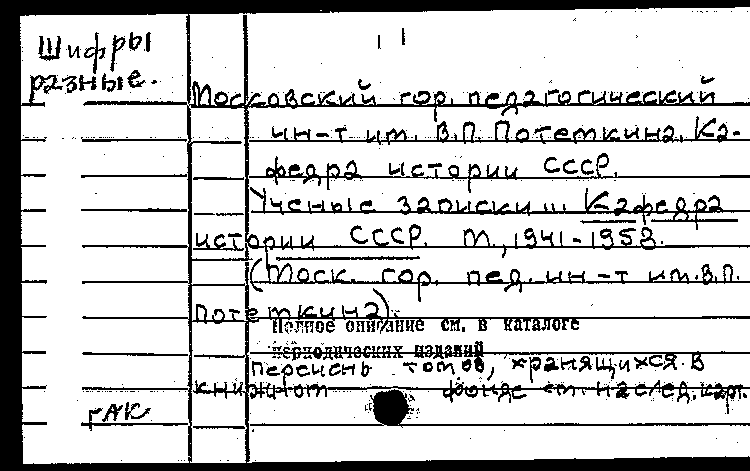 Шифры
разные.
Московский гор. педагогический
ин-т им. В.П. Потемкина. Ка-
федра истории СССР.
Ученые записки... Кафедра
истории СССР. М., 1941-1958.
(Моск. гор. пед. ин-т им. В.П.
Потемкина).
Полное описание см. в каталоге
периодических изданий
перечень томов, хранящихся в
книжном фонде см. на след. карт.
ГАК